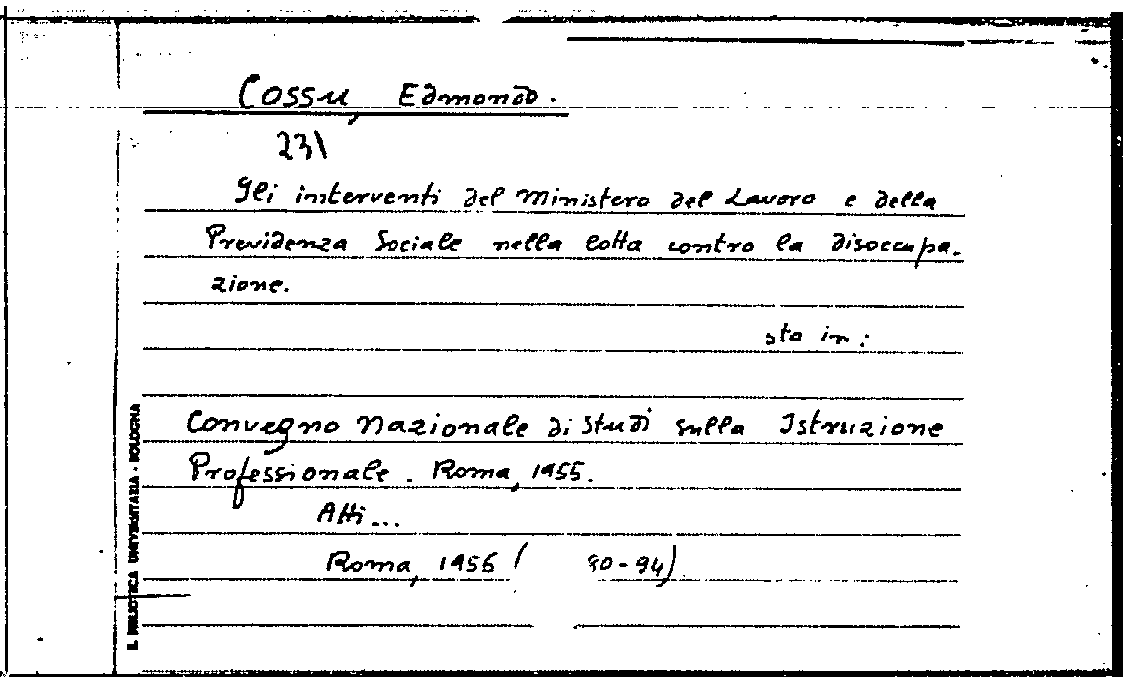 Cossu, Edmondo.
231
Gli interventi del Ministero del Lavoro e della
Previdenza Sociale nella lotta contro la disoccupa-
zione.
sta in:
Convegno Nazionale di Studi sulla Istruzione
Professionale. Roma, 1955.
Atti...
Roma, 1956 ( 90-94)
R. BIBLIOTECA UNIVERSITARIA - BOLOGNA